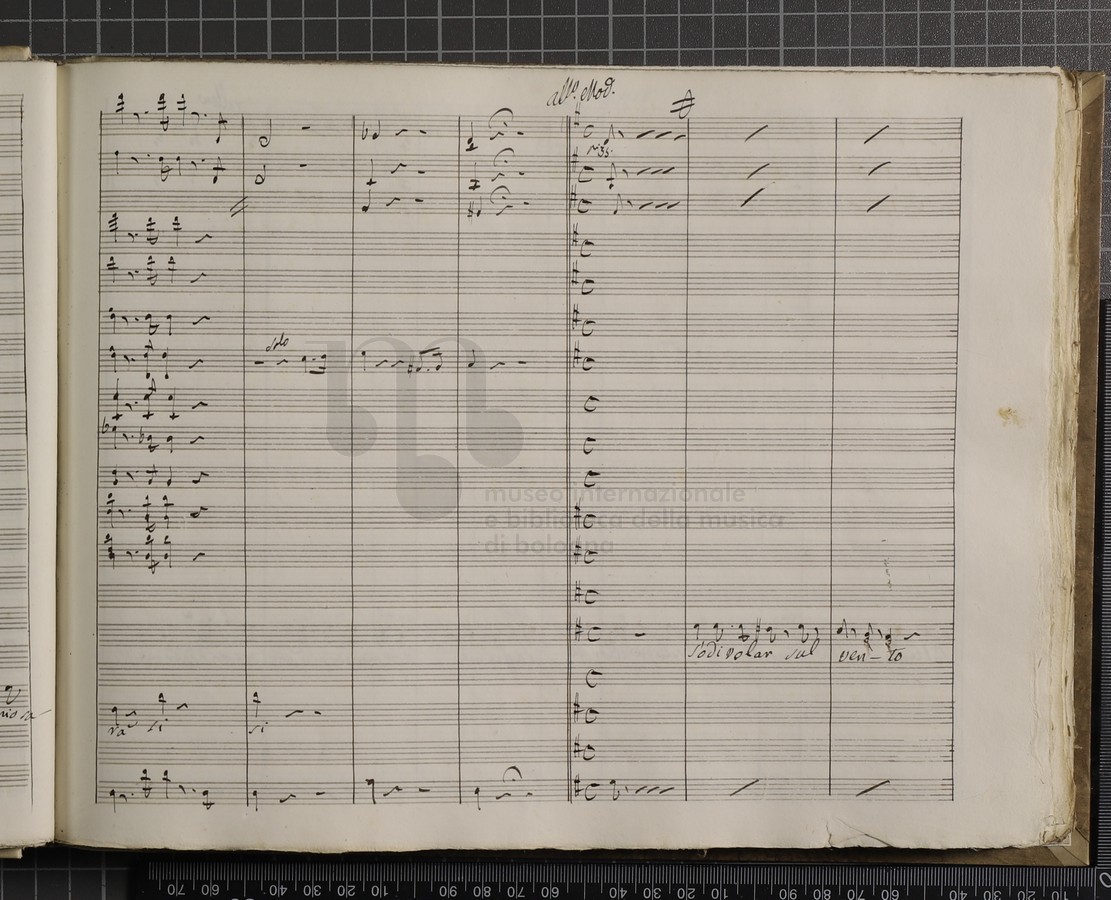 all.º Mod.
solo
museo internazionale
e biblioteca della musica
di bologna
Sodi volar sul ven-to
ra si si
70 60 40 30 20 10 90 80 70 60 40 30 20 10 90 80 70 60 40 30 20 10